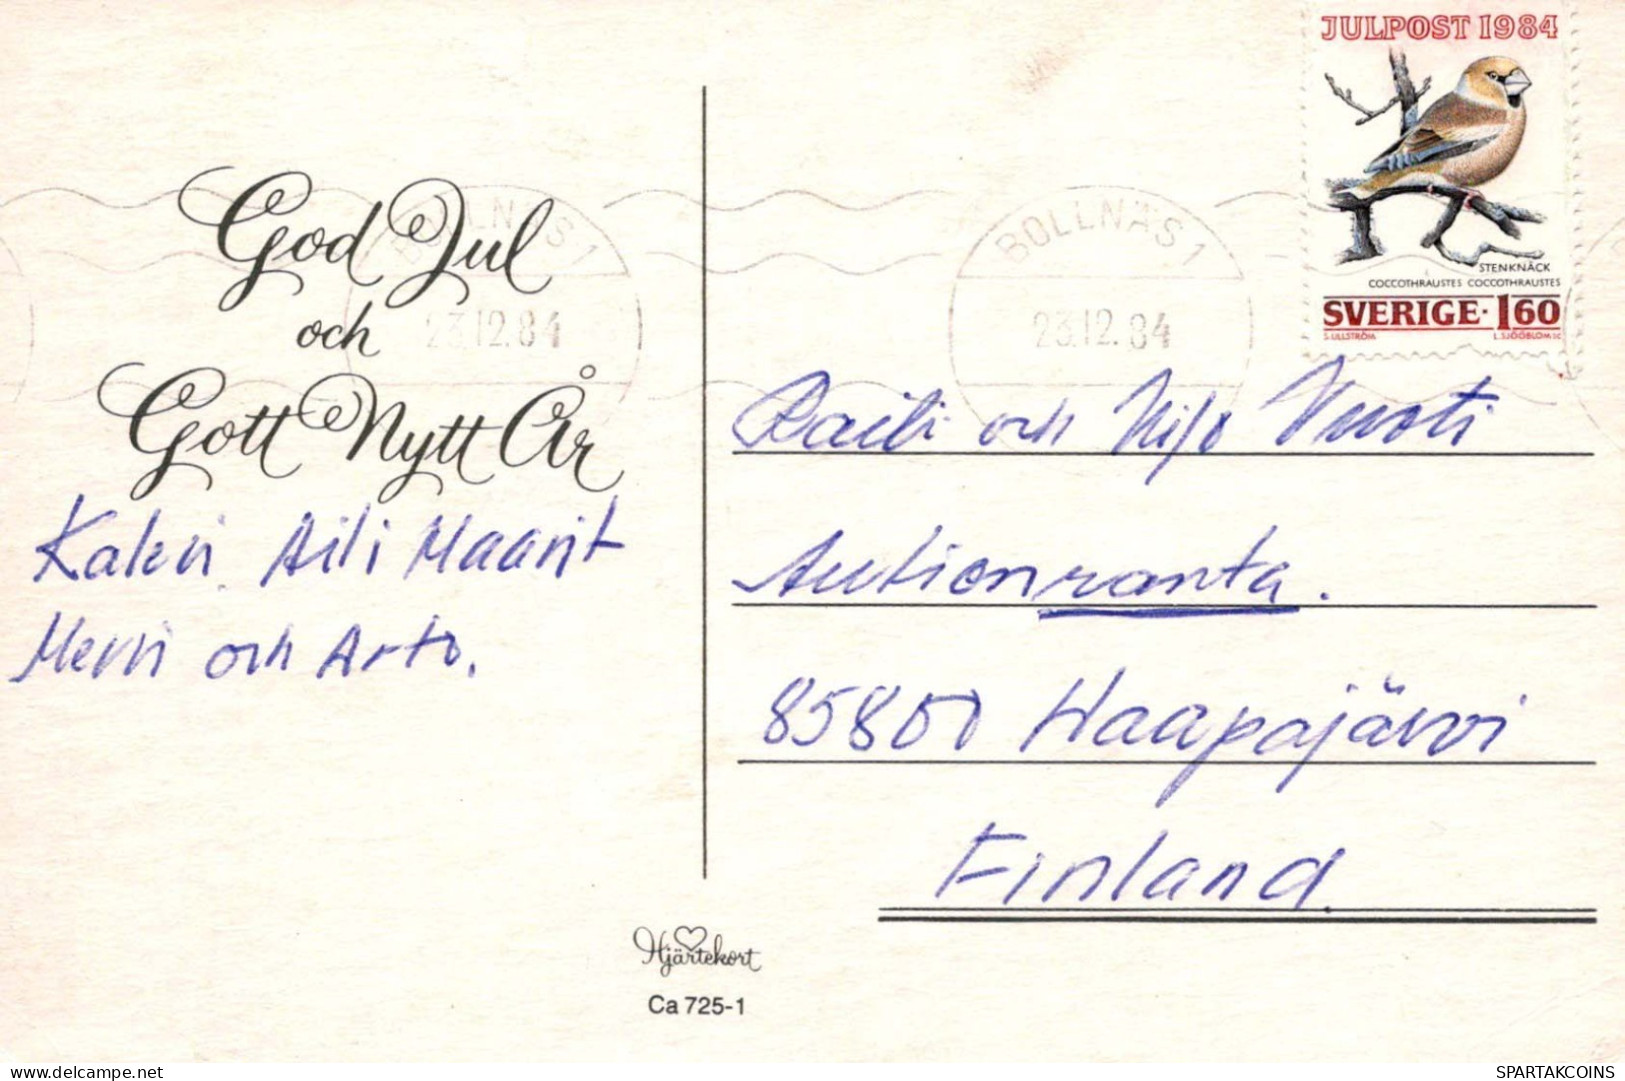 JULPOST 1984
STENKNÄCK
COCCOTHRAUSTES COCCOTHRAUSTES
SVERIGE·160
S.ULLSTRÖM L.SJÖÖBLOM SC
BOLLNÄS 1
23.12.84
BOLLNÄS 1
23.12.84
God Jul
och
Gott Nytt År
Kalevi Aili Maarit
Mervi och Arto.
Raili och Niilo Vuoti
Autionranta.
85800 Haapajärvi
Finland
Hjärtekort
Ca 725-1
delcampe.net
SPARTAKCOINS